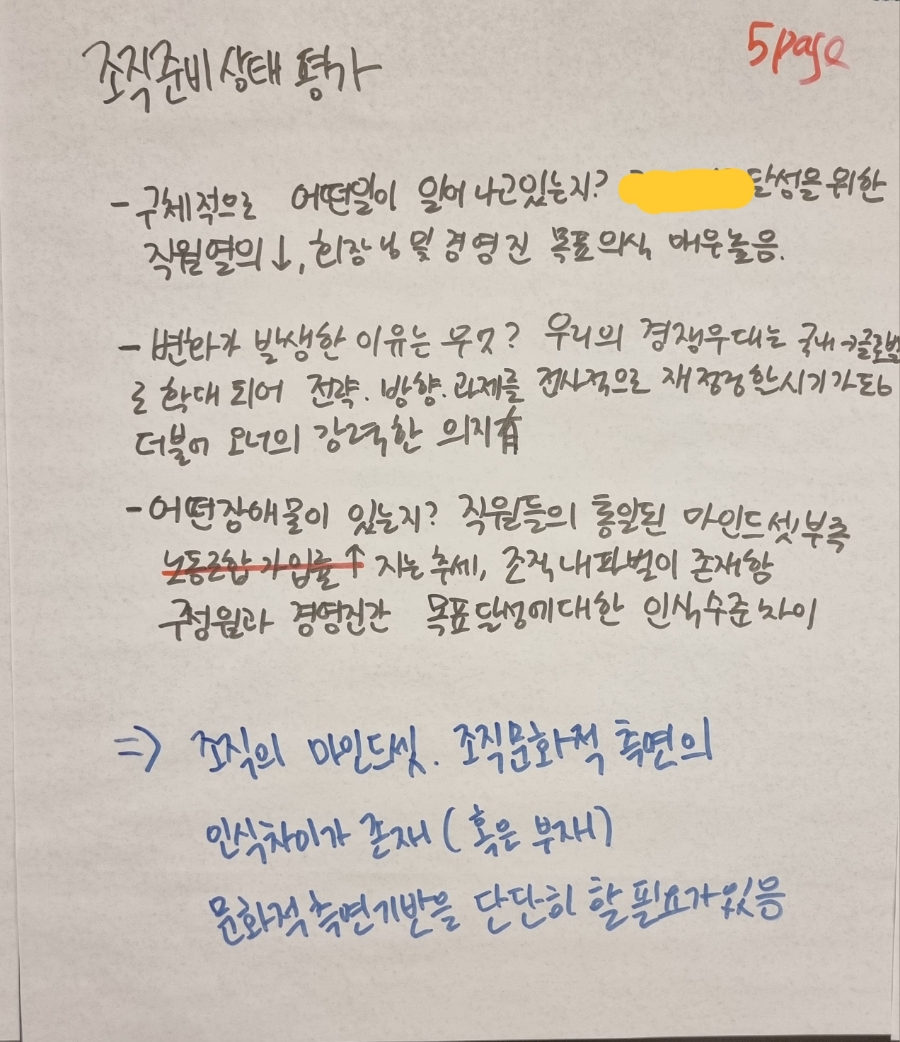 5page
조직준비상태 평가
- 구체적으로 어떤일이 일어나고있는지? 달성을 위한
직원열의↓, 회장님 및 경영진 목표의식 매우높음.
- 변화가 발생한 이유는 무엇? 우리의 경쟁무대는 국내→글로벌
로 확대 되어 전략. 방향. 과제를 전사적으로 재정렬할시기가
더불어 오너의 강력한 의지有
- 어떤장애물이 있는지? 직원들의 통일된 마인드셋부족
노동조합 가입률↑ 지는 추세, 조직내파벌이 존재함
구성원과 경영진간 목표달성에대한 인식수준차이
⇒ 조직의 마인드셋. 조직문화적 측면의
인식차이가 존재 (혹은 부재)
문화적측면기반을 단단히 할 필요가있음